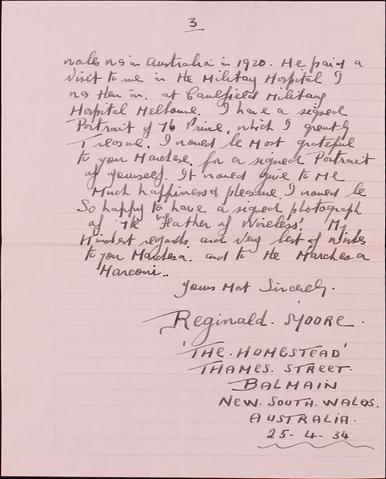 3
Wales was in Australia in 1920. He paid a
visit to me in the Military Hospital I
was then in. at Caulfield Military
Hospital Melbourne. I have a signed
Portrait of the Prince, which I greatly
Treasure. I would be most grateful
to you Marchese, for a signed Portrait
of yourself. It would give to me
Much happiness & pleasure. I would be
So happy to have a signed photograph
of 'The Father of Wireless'. My
Kindest regards, and very best of wishes
to you Marchese. and to the Marchesa
Marconi..
Yours Most Sincerely.
Reginald. Moore.
'THE. HOMESTEAD'
THAMES. STREET.
BALMAIN
NEW. SOUTH. WALES.
AUSTRALIA.
25-4.34